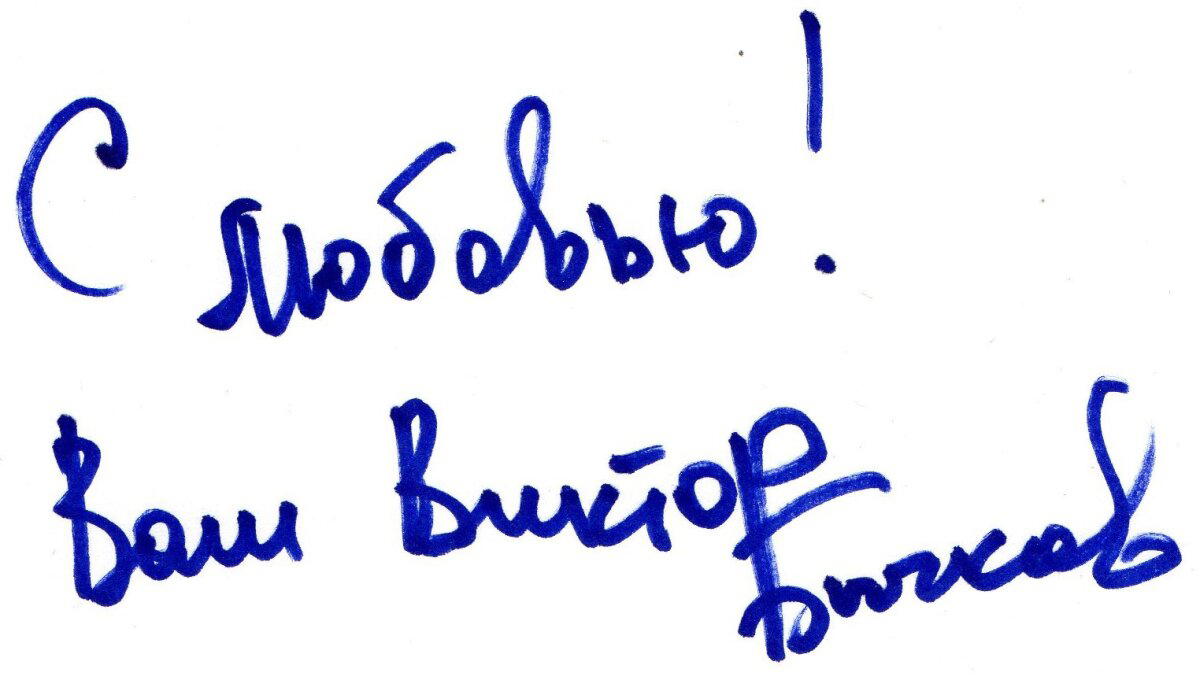 С любовью!
Ваш Виктор Бычков